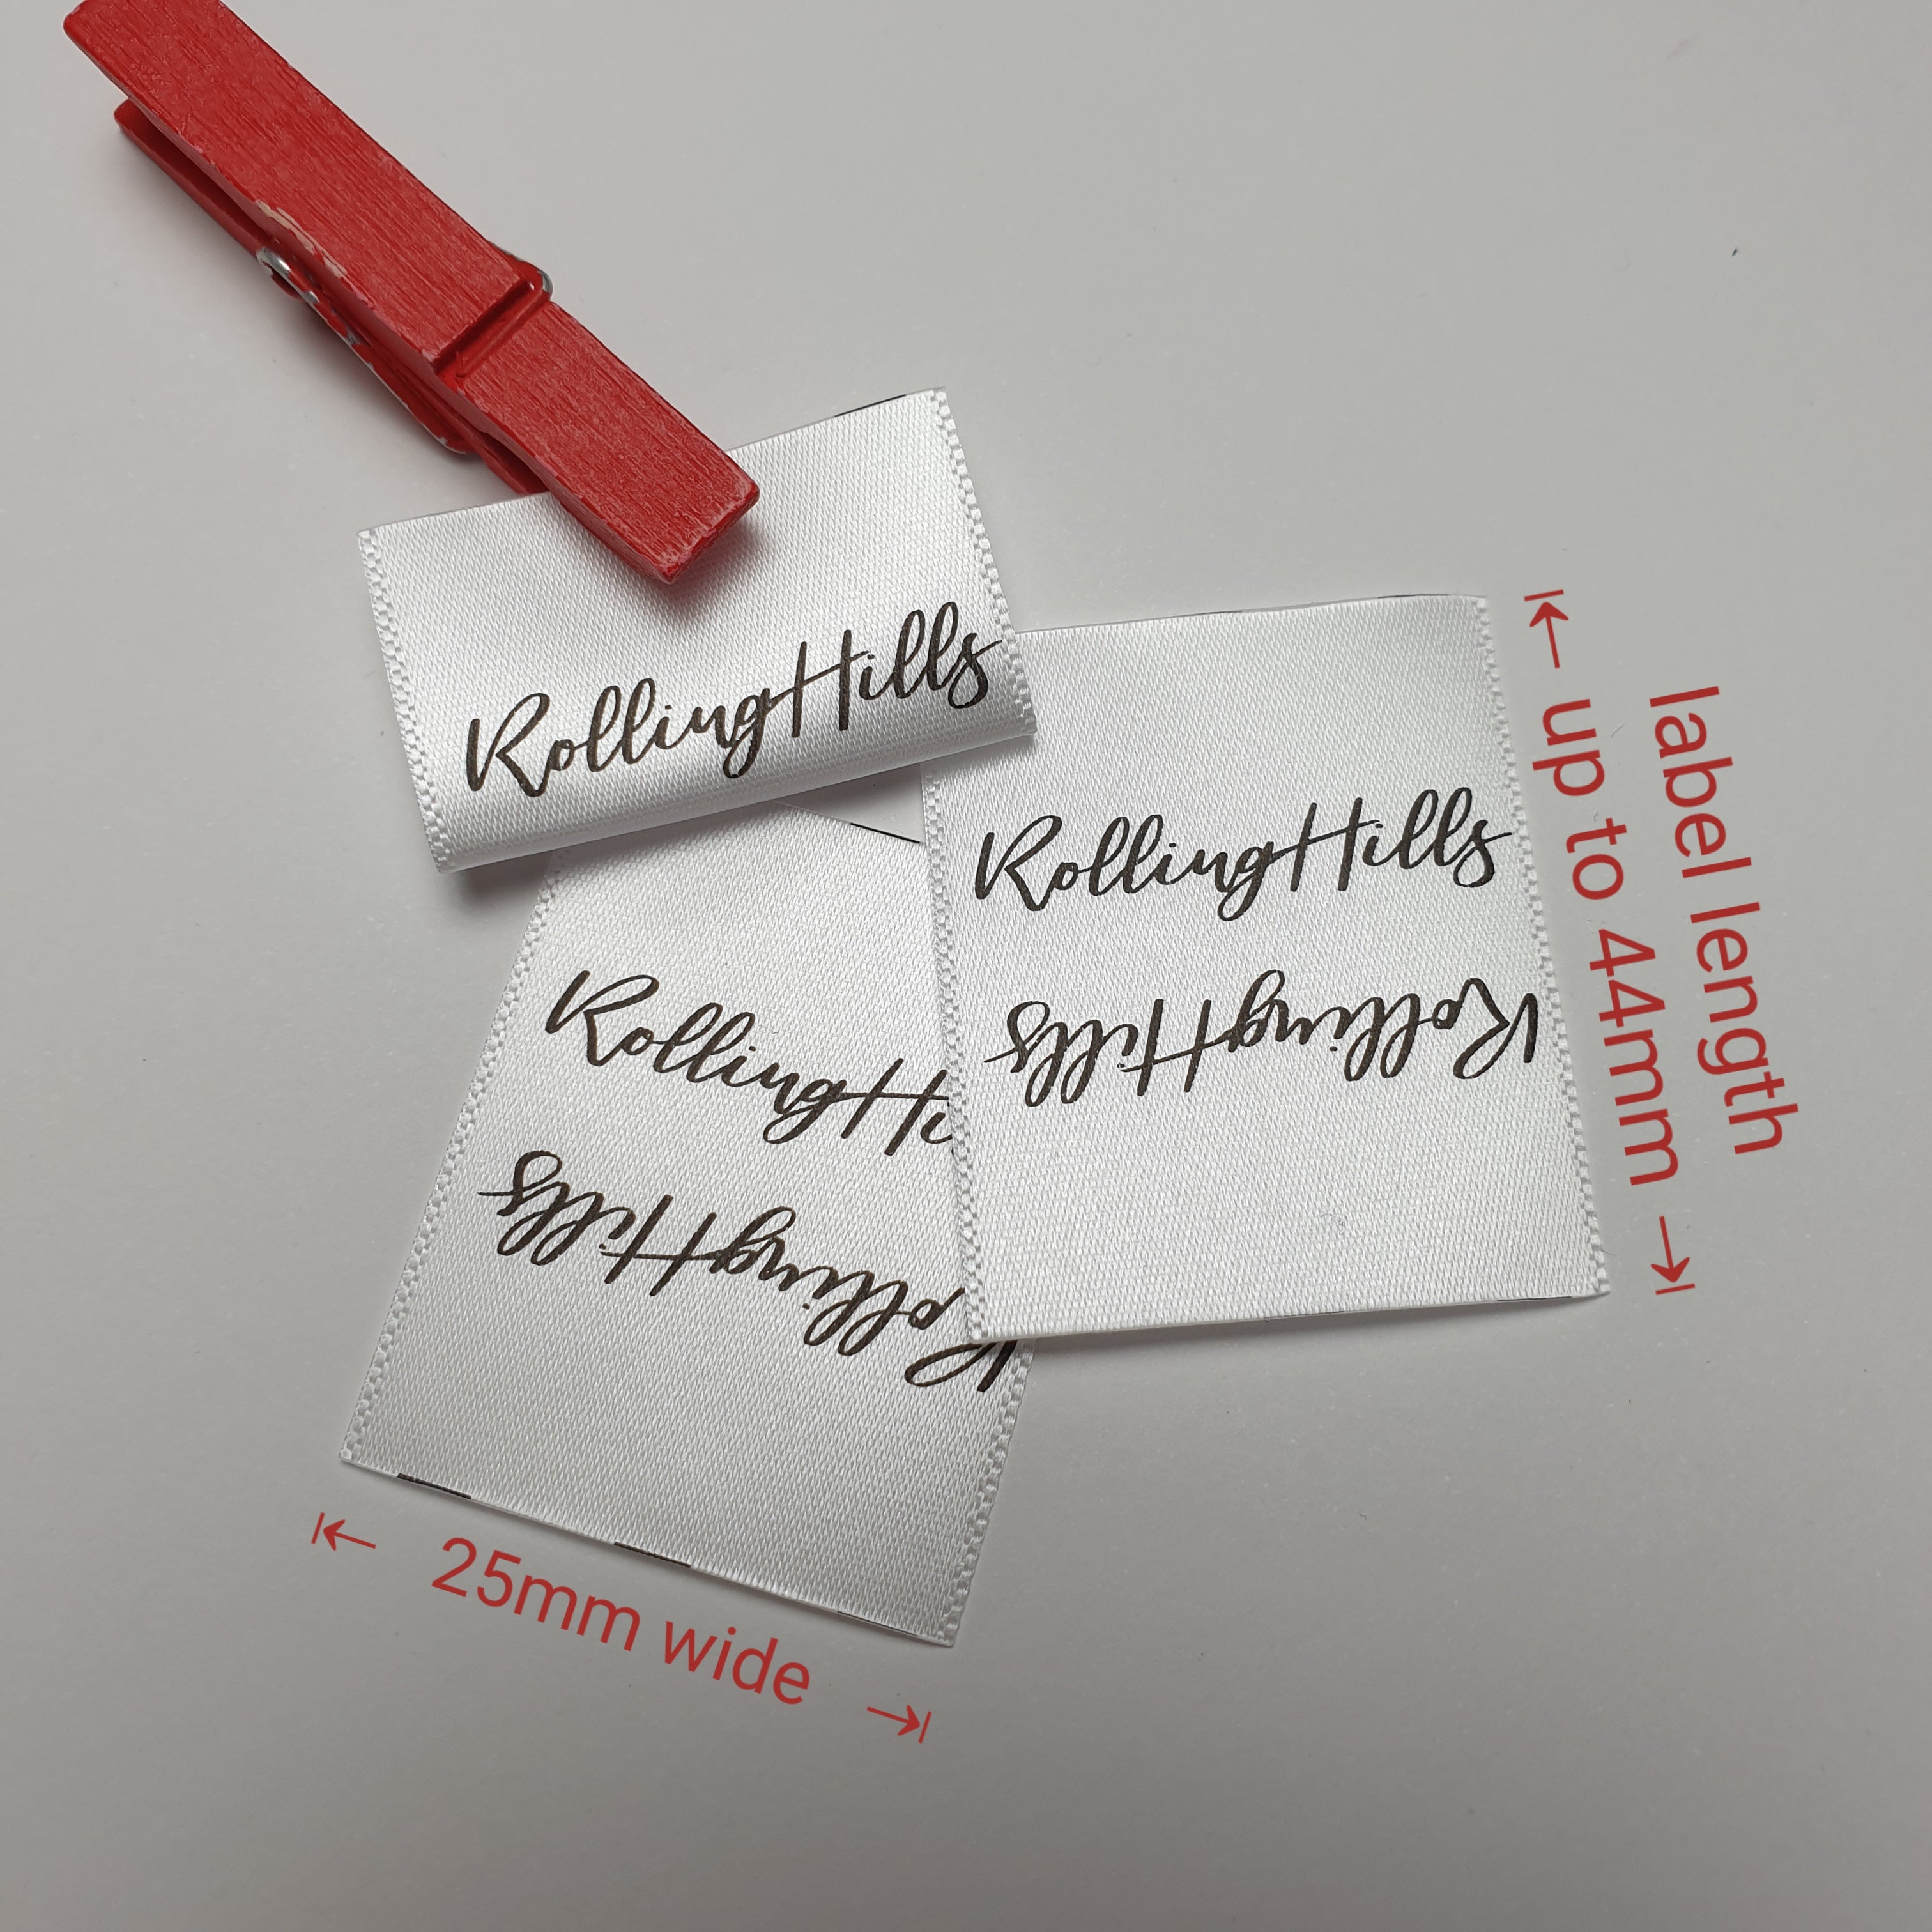 RollingHills
RollingHills
RollingHills
RollingHi
RollingHills
label length
up to 44mm
25mm wide